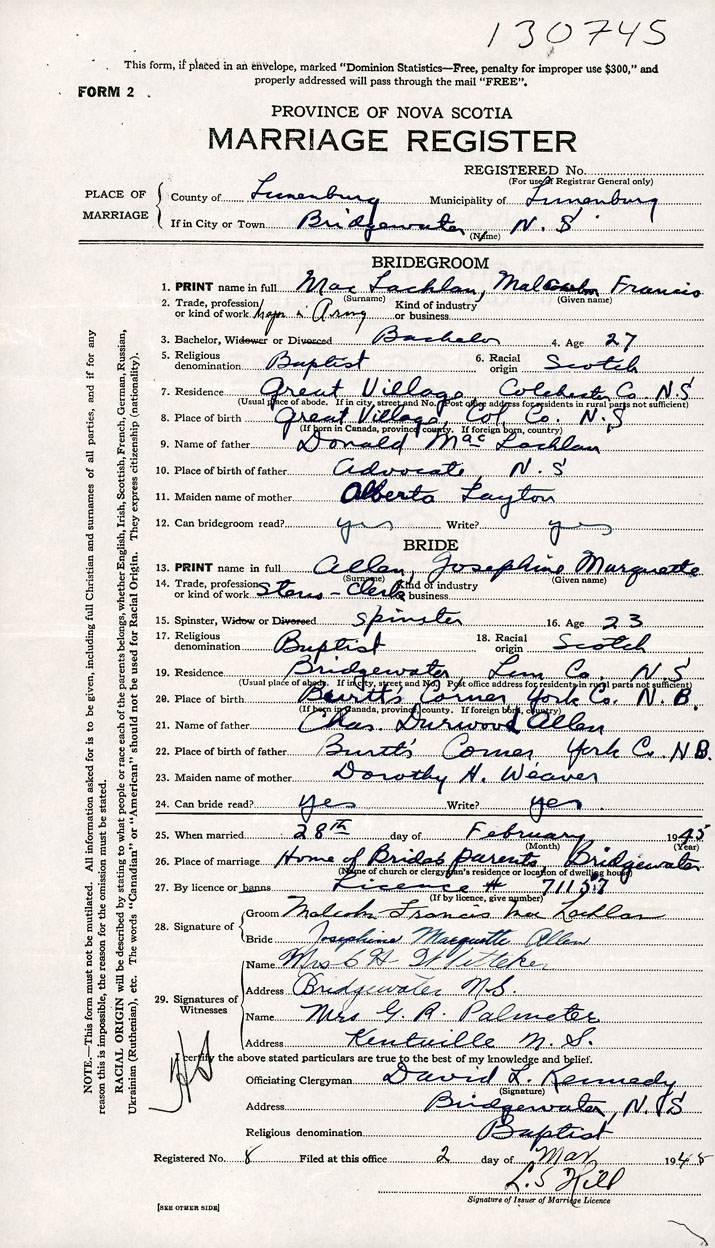 130745
This form, if placed in an envelope, marked "Dominion Statistics—Free, penalty for improper use $300," and
properly addressed will pass through the mail "FREE".
FORM 2
PROVINCE OF NOVA SCOTIA
MARRIAGE REGISTER
REGISTERED No.
(For use of Registrar General only)
PLACE OF MARRIAGE
County of Lunenburg Municipality of Lunenburg
If in City or Town Bridgewater, N. S.
(Name)
BRIDEGROOM
1. PRINT name in full Mac Lachlan, Malcolm Francis
(Surname) (Given name)
2. Trade, profession or kind of work Major in Army Kind of industry or business
3. Bachelor, Widower or Divorced Bachelor 4. Age 27
5. Religious denomination Baptist 6. Racial origin Scotch
7. Residence Great Village, Colchester Co. N.S
(Usual place of abode. If in city, street and No. Post office address for residents in rural parts not sufficient)
8. Place of birth Great Village, Col. Co. N. S
(If born in Canada, province, county. If foreign born, country)
9. Name of father Donald Mac Lachlan
10. Place of birth of father Advocate, N. S
11. Maiden name of mother Alberta Layton
12. Can bridegroom read? yes Write? yes
BRIDE
13. PRINT name in full Allen, Josephine Marquette
(Surname) (Given name)
14. Trade, profession or kind of work Steno-Clerk Kind of industry business
15. Spinster, Widow or Divorced Spinster 16. Age 23
17. Religious denomination Baptist 18. Racial origin Scotch
19. Residence Bridgewater Lun Co. N. S
(Usual place of abode. If in city, street and No. Post office address for residents in rural parts not sufficient)
20. Place of birth Burtts Corner York Co. N. B.
(If born in Canada, province, county. If foreign born, country)
21. Name of father Chas. Durwood Allen
22. Place of birth of father Burtt's Corner York Co. N.B.
23. Maiden name of mother Dorothy H. Weaver
24. Can bride read? yes Write? yes
25. When married 28th day of February 1945
(Month) (Year)
26. Place of marriage Home of Bride's parents, Bridgewater
(Name of church or clergyman's residence or location of dwelling house)
27. By licence or banns Licence # 71157
(If by licence, give number)
28. Signature of
Groom Malcolm Francis Mac Lachlan
Bride Josephine Marquette Allen
29. Signatures of Witnesses
Name Mrs C H Whitteker
Address Bridgewater N.S.
Name Mrs G. R. Palmeter
Address Kentville N. S.
I certify the above stated particulars are true to the best of my knowledge and belief.
Officiating Clergyman David L. Kennedy
(Signature)
Address Bridgewater, N. S
Religious denomination Baptist
Registered No. 8 Filed at this office 2 day of Mar 1945
L. S Hill
Signature of Issuer of Marriage Licence
[SEE OTHER SIDE]
NOTE.—This form must not be mutilated. All information asked for is to be given, including full Christian and surnames of all parties, and if for any
reason this is impossible, the reason for the omission must be stated.
RACIAL ORIGIN will be described by stating to what people or race each of the parents belongs, whether English, Irish, Scottish, French, German, Russian,
Ukrainian (Ruthenian), etc. The words "Canadian" or "American" should not be used for Racial Origin. They express citizenship (nationality).